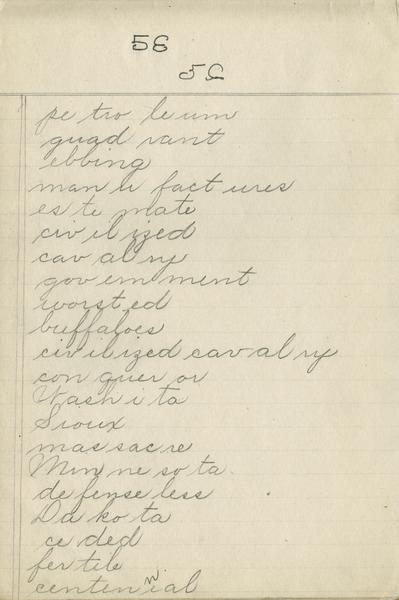 56
56
pe tro le um
quad rant
ebbing
man u fact ures
es te mate
civ il ized
cav al ry
gov ern ment
worst ed
buffaloes
civ il ized cav al ry
con quer or
Wash i ta
Sioux
mas sacre
Min ne so ta
de fense less
Da ko ta
ce ded
fer tile
centennial